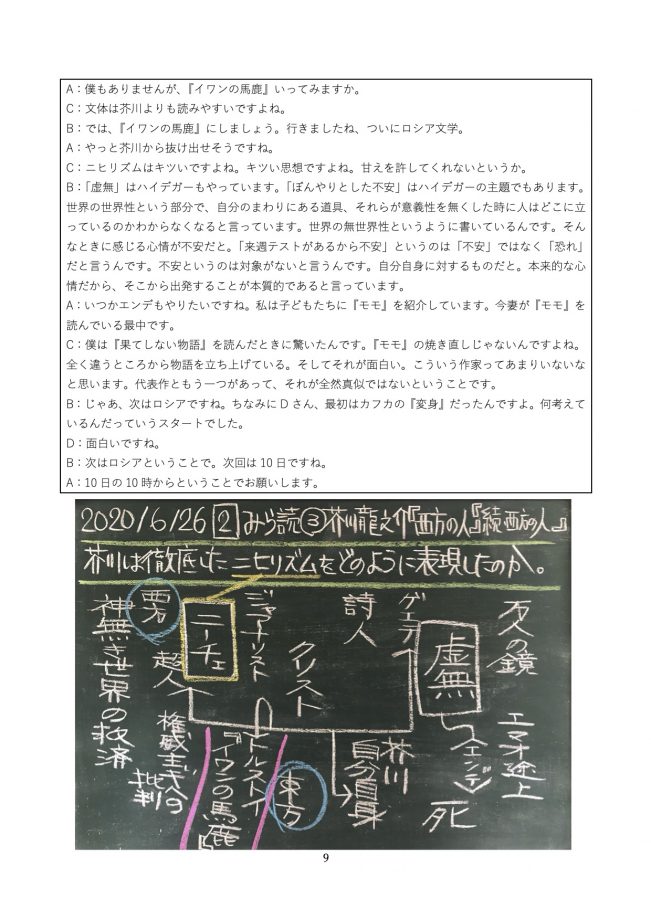 A：僕もありませんが、『イワンの馬鹿』いってみますか。
C：文体は芥川よりも読みやすいですよね。
B：では、『イワンの馬鹿』にしましょう。行きましたね、ついにロシア文学。
A：やっと芥川から抜け出せそうですね。
C：ニヒリズムはキツいですよね。キツい思想ですよね。甘えを許してくれないというか。
B：「虚無」はハイデガーもやっています。「ぼんやりとした不安」はハイデガーの主題でもあります。
世界の世界性という部分で、自分のまわりにある道具、それらが意義性を無くした時に人はどこに立
っているのかわからなくなると言っています。世界の無世界性というように書いているんです。そん
なときに感じる心情が不安だと。「来週テストがあるから不安」というのは「不安」ではなく「恐れ」
だと言うんです。不安というのは対象がないと言うんです。自分自身に対するものだと。本来的な心
情だから、そこから出発することが本質的であると言っています。
A：いつかエンデもやりたいですね。私は子どもたちに『モモ』を紹介しています。今妻が『モモ』を
読んでいる最中です。
C：僕は『果てしない物語』を読んだときに驚いたんです。『モモ』の焼き直しじゃないんですよね。
全く違うところから物語を立ち上げている。そしてそれが面白い。こういう作家ってあまりいないな
と思います。代表作ともう一つがあって、それが全然真似ではないということです。
B：じゃあ、次はロシアですね。ちなみに D さん、最初はカフカの『変身』だったんですよ。何考えて
いるんだっていうスタートでした。
D：面白いですね。
B：次はロシアということで。次回は 10 日ですね。
A：10 日の 10 時からということでお願いします。
2020/6/26 2 みら読③芥川龍之介『西方の人』『続西方の人』
芥川は徹底したニヒリズムをどのように表現したのか。
友人の鏡
エマオ途上
虚無
エンデ
死
ゲエテ
芥川
自分自身
詩人
クリスト
東方
ジャアナリスト
トルストイ
『イワンの馬鹿』
ニーチェ
西方
超人
権威主義の
批判
神無き世界の救済
9